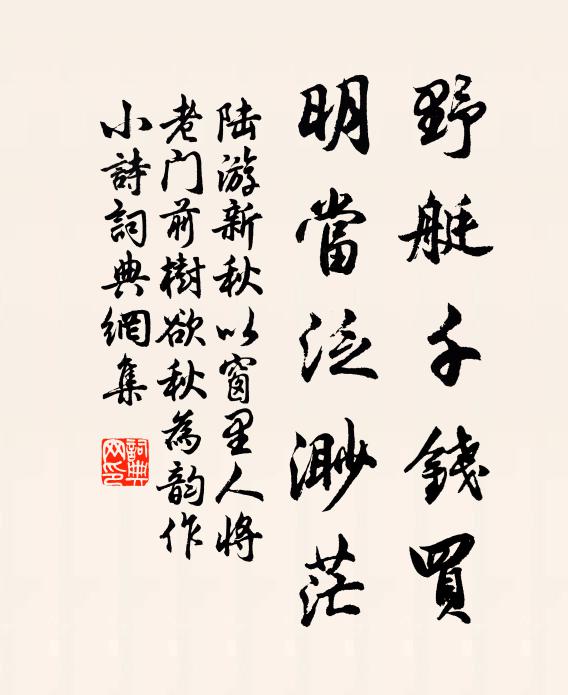 野艇千錢買
明當泛渺茫
陆游新秋以窗里人将
老门前樹欲秋為韵作
小詩詞典網集
詞典网印